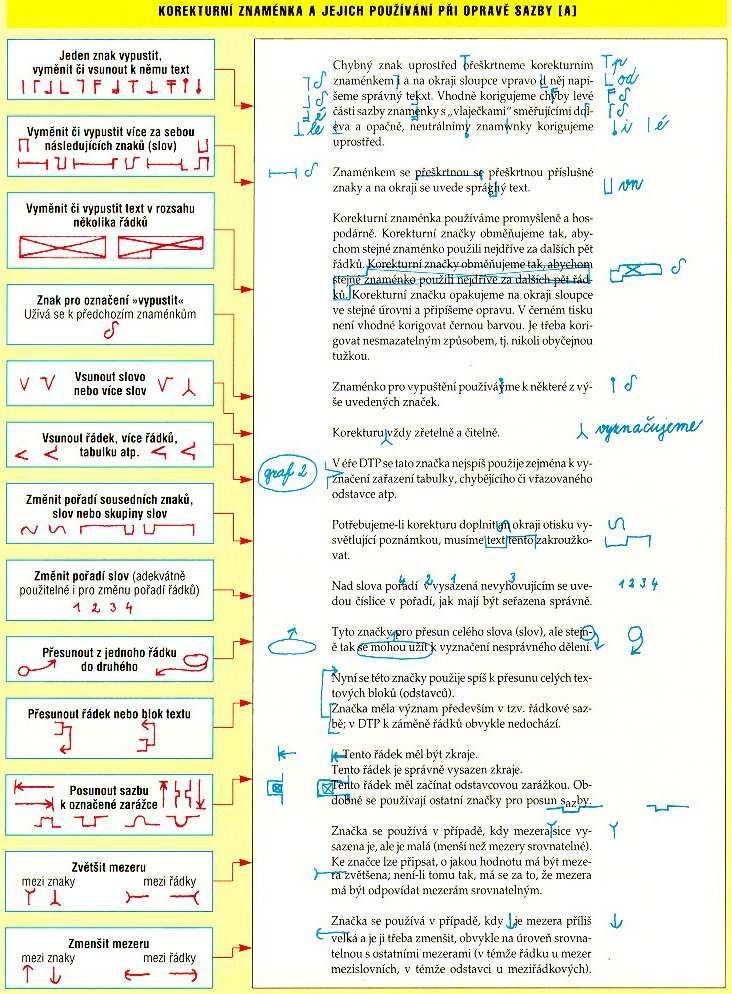 KOREKTURNÍ ZNAMÉNKA A JEJICH POUŽÍVÁNÍ PŘI OPRAVĚ SAZBY [A]
Jeden znak vypustit,
vyměnit či vsunout k němu text
Vyměnit či vypustit více za sebou
následujících znaků (slov)
Vyměnit či vypustit text v rozsahu
několika řádků
Znak pro označení »vypustit«
Užívá se k předchozím znaménkům
Vsunout slovo
nebo více slov
Vsunout řádek, více řádků,
tabulku atp.
Změnit pořadí sousedních znaků,
slov nebo skupiny slov
Změnit pořadí slov (adekvátně
použitelné i pro změnu pořadí řádků)
1 2 3 4
Přesunout z jednoho řádku
do druhého
Přesunout řádek nebo blok textu
Posunout sazbu
k označené zarážce
Zvětšit mezeru
mezi znaky mezi řádky
Zmenšit mezeru
mezi znaky mezi řádky
Chybný znak uprostřed řeškrtneme korekturním
znaménkem a na okraji sloupce vpravo něj napi-
šeme správný tekxt. Vhodně korigujeme chyby levé
části sazby znaménky s „vlaječkami“ směřujícími do
eva a opačně, neutrálními znamvnky korigujeme
uprostřed.
p
od
lé
i lé
Znaménkem se přeškrtnou se přeškrtnou příslušné
znaky a na okraji se uvede správhý text.
vn
Korekturní znaménka používáme promyšleně a hos-
podárně. Korekturní značky obměňujeme tak, aby-
chom stejné znaménko použili nejdříve za dalších pět
řádků. Korekturní značky obměňujeme tak, abychom
stejné znaménko použili nejdříve za dalších pět řád-
ků. Korekturní značku opakujeme na okraji sloupce
ve stejné úrovni a připíšeme opravu. V černém tisku
není vhodné korigovat černou barvou. Je třeba kori-
govat nesmazatelným způsobem, tj. nikoli obyčejnou
tužkou.
Znaménko pro vypuštění používáyme k některé z vý-
še uvedených značek.
Korekturu vždy zřetelně a čitelně.
vyznačujeme
graf 2
V éře DTP se tato značka nejspíš použije zejména k vy-
značení zařazení tabulky, chybějícího či vřazovaného
odstavce atp.
Potřebujeme-li korekturu doplnit an okraji otisku vy-
světlující poznámkou, musíme text tento zakroužko-
vat.
4 2 1 3
Nad slova pořadí v vysázená nevyhovujícím se uve-
dou číslice v pořadí, jak mají být seřazena správně.
1 2 3 4
Tyto značky pro přesun celého slova (slov), ale stejn-
ě tak se mohou užít k vyznačení nesprávného dělení.
Nyní se této značky použije spíš k přesunu celých tex-
tových bloků (odstavců).
Značka měla význam především v tzv. řádkové saz-
bě; v DTP k záměně řádků obvykle nedochází.
Tento řádek měl být zkraje.
Tento řádek je správně vysazen zkraje.
Tento řádek měl začínat odstavcovou zarážkou. Ob-
dobně se používají ostatní značky pro posun sazby.
Značka se používá v případě, kdy mezera sice vy-
sazena je, ale je malá (menší než mezery srovnatelné).
Ke značce lze připsat, o jakou hodnotu má být meze-
ra zvětšena; není-li tomu tak, má se za to, že mezera
má být odpovídat mezerám srovnatelným.
Značka se používá v případě, kdy je mezera příliš
velká a je ji třeba zmenšit, obvykle na úroveň srovna-
telnou s ostatními mezerami (v témže řádku u mezer
mezislovních, v témže odstavci u meziřádkových).